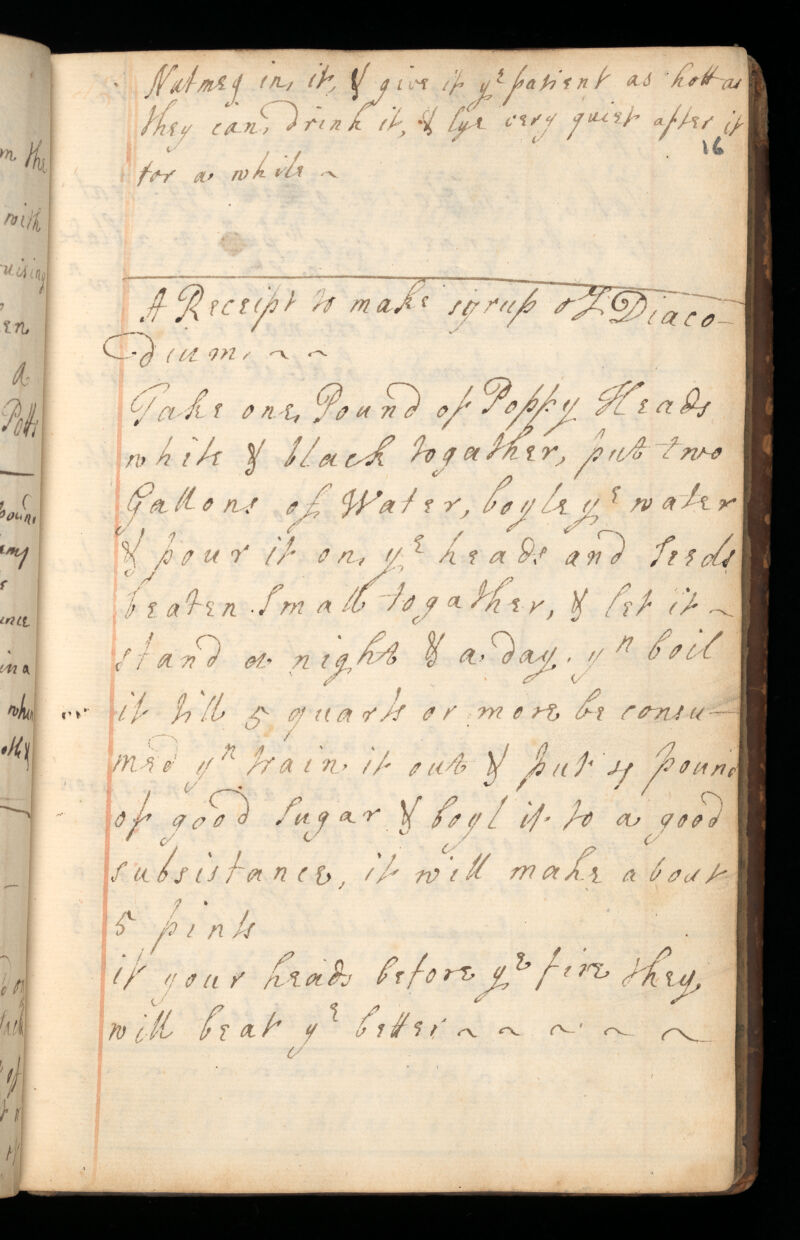 Nutmeg in it, & give it yᵉ patient as hott as
they can drink it, & lye very quiet after it
16
for a while ~
A Receipt to make syrup of Diaco-
dium. ~ ~
Take one Pound of Poppy Heads
white & black togather, put two
Gallons of Water, boyle yᵉ water
& pour it on yᵉ heads and Seeds
beaten Small togather, & let it ~
stand a night & a day. yⁿ boil
it till 5 quarts or more be consu-
med yⁿ train it out & put 4 pound
of good Sugar & boyl it to a good
subsistance, it will make about
5 pints
it your heads before yᵉ fire they
will beat yᵉ better ~ ~ ~ ~ ~
m the
with
uising
en
a
Potts